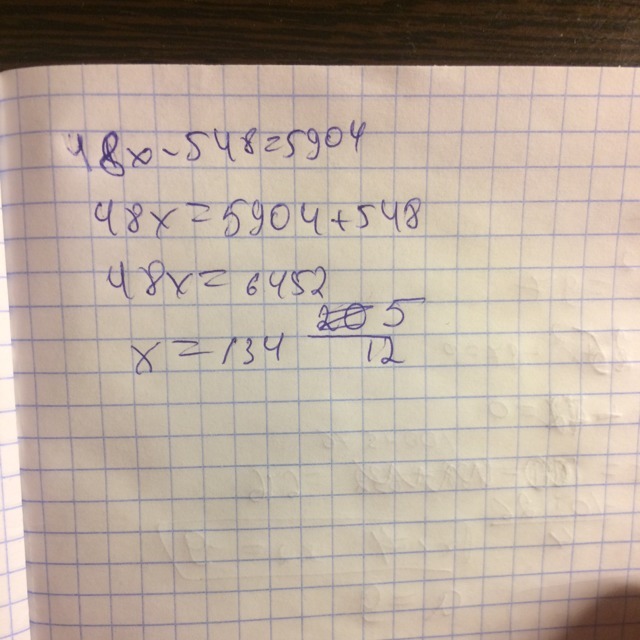 48x-548=5904
48x=5904+548
48x=6452
x=134 5/12